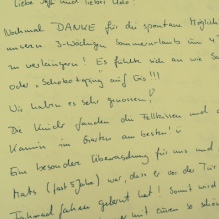 Liebe
und lieber Udo!
Nochmal DANKE für die spontane Möglich
unseren 3-wöchigen Sommerurlaub um 4
zu verlängern! Es fühlte sich an wie
oder auf Eis!!!
Wir haben es sehr genossen!
Die Kinder fanden die und
Kamin im Garten am besten!
Eine besondere Überraschung für uns und
Mats (fast 5 Jahre) war, dass er vor der Tür
Fahrrad fahren gelernt hat! Somit wird
einen so